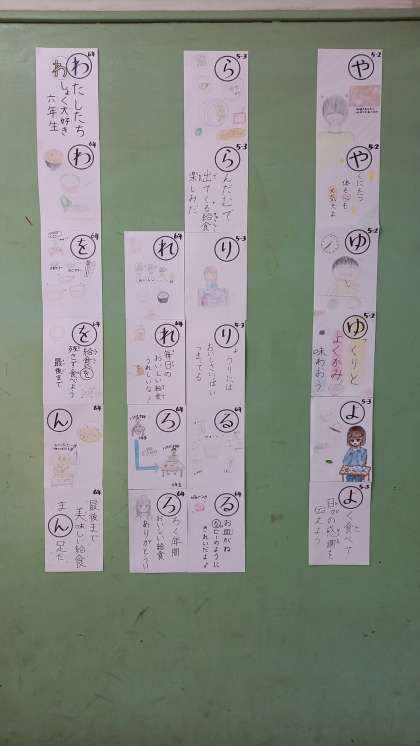 5-2
や
5-2
や
くにたつ
体も心も
元気だよ
5-2
ゆ
5-2
ゆ
っくりと
よくかみ
味わおう
5-3
よ
5-3
よ
く食べて
日々の感謝を
伝えよう
5-3
ら
5-3
ら
んだむで
出てくる給食
楽しみだ
5-3
り
5-3
り
ょうりには
おいしさいっぱい
つまってる
6年
る
6年
る
お皿がね
るびーのように
きれいだよ♪
6年
れ
6年
れ
毎日の
おいしい給食
うれしいな!
6年
ろ
6年
ろ
ろく年間
おいしい給食
ありがとう
6年
わ
わたしたち
しょく大好き
六年生
6年
わ
6年
を
6年
を
給食を
残さず食べよう
最後まで
6年
ん
6年
最後まで
美味しい給食
まん足だ